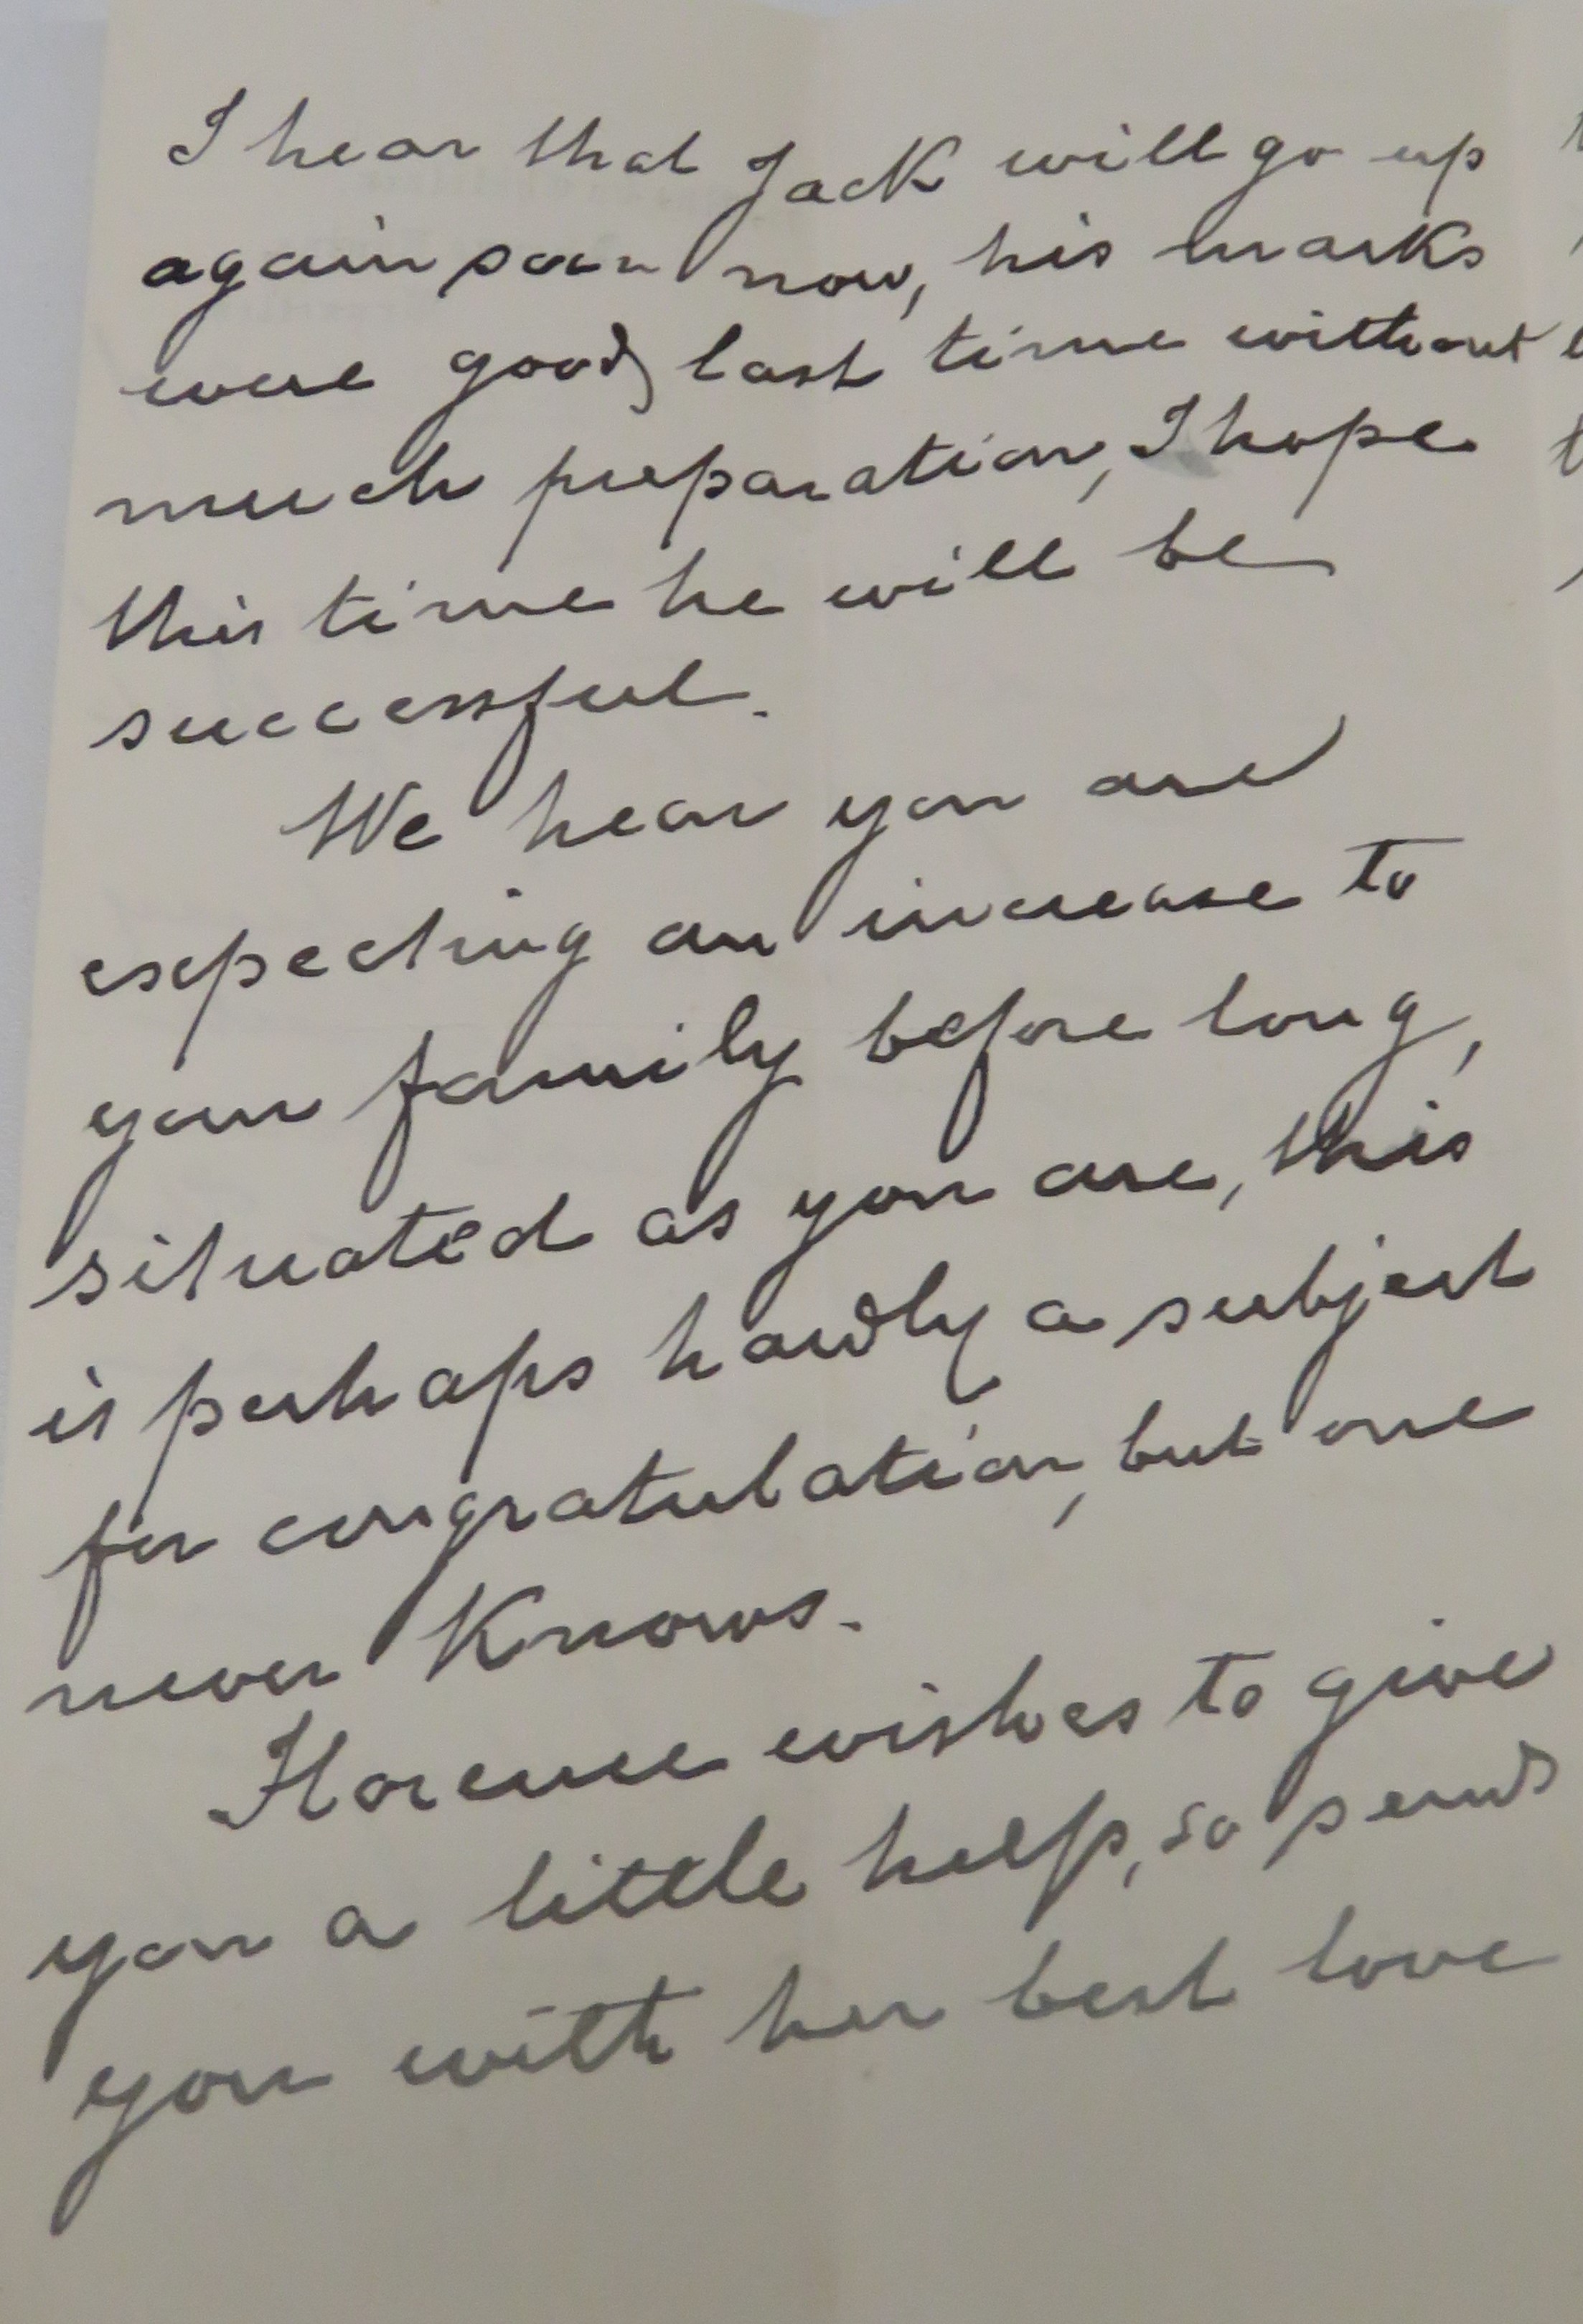 I hear that Jack will go up
again soon now, his marks
were good last time without
much preparation, I hope
this time he will be
successful.
We hear you are
expecting an increase to
your family before long,
situated as you are, this
is perhaps hardly a subject
for congratulation, but one
never Knows.
Florence wishes to give
you a little help, so sends
you with her best love